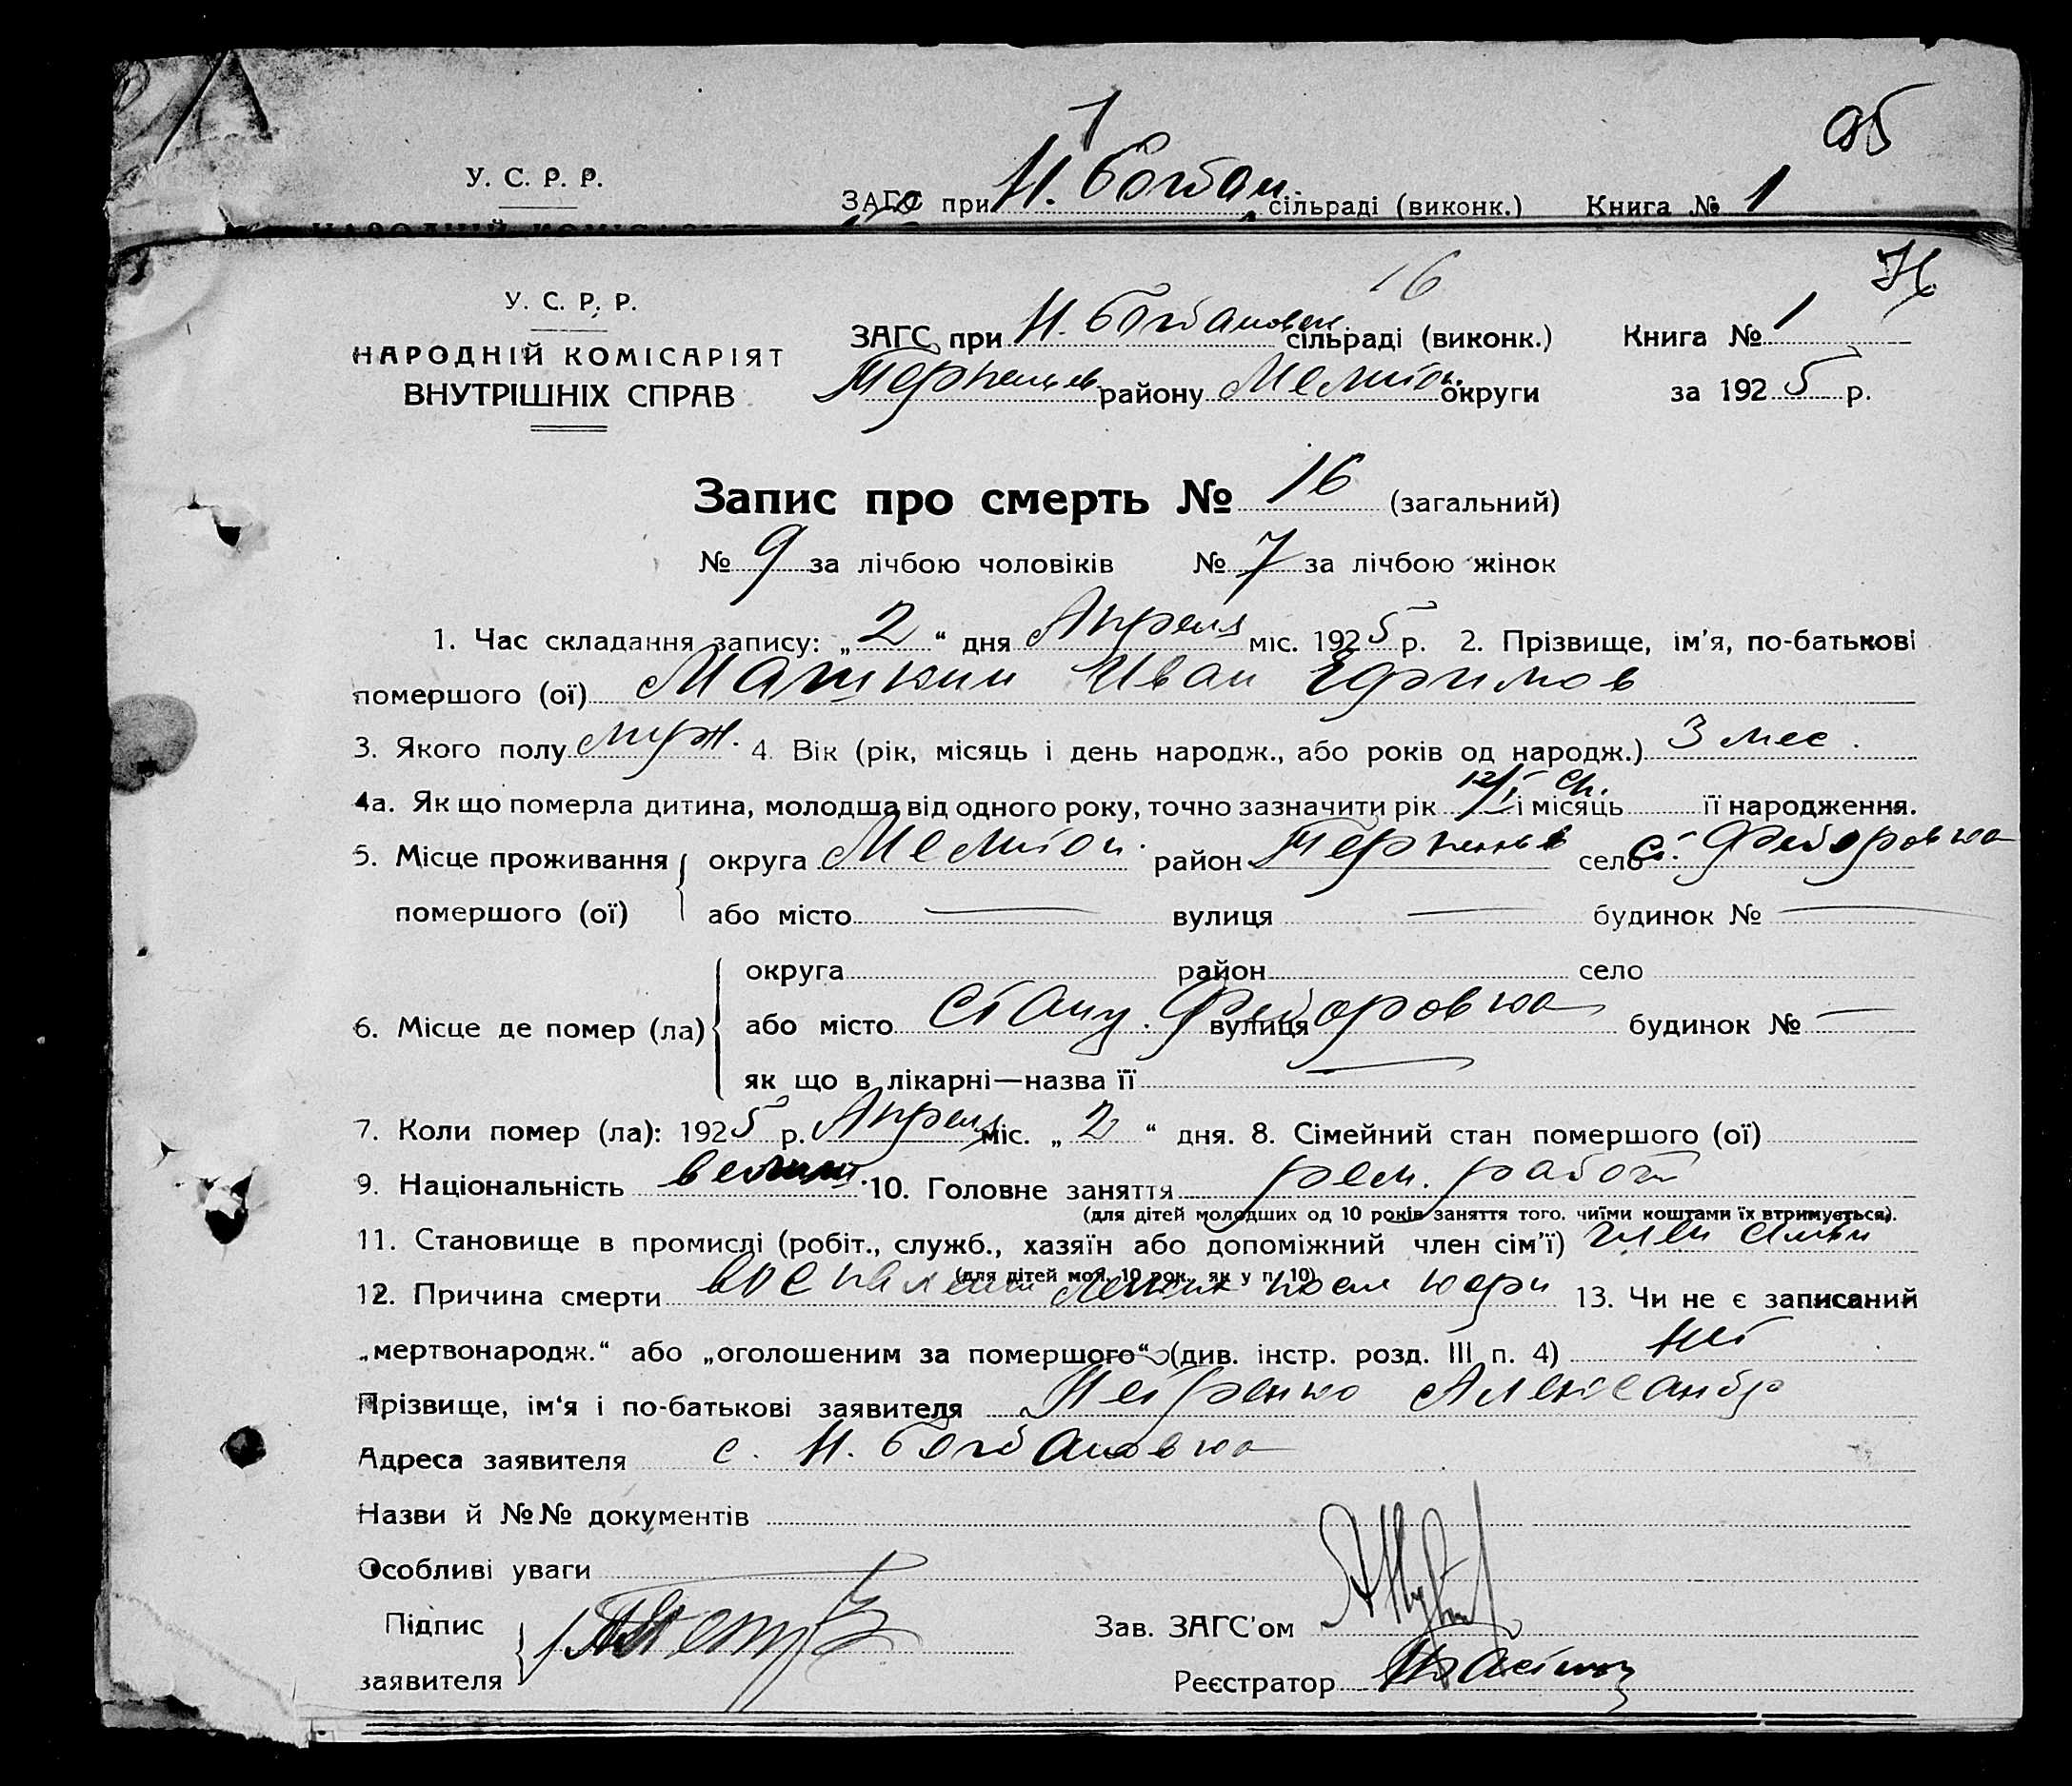 У. С. Р. Р.
ЗАГС при Н. Богдан. сільраді (виконк.) Книга № 1
16
У. С. Р. Р.
ЗАГС при Н. Богдановск. сільраді (виконк.) Книга № 1
НАРОДНІЙ КОМІСАРІЯТ
ВНУТРІШНІХ СПРАВ
району Мелитоп. округи за 1925 р.
Запис про смерть № 16 (загальний)
№ 9 за лічбою чоловіків № 7 за лічбою жінок
1. Час складання запису: „2“ дня Апреля міс. 1925 р. 2. Прізвище, ім'я, по-батькові
помершого (ої) Машкин Иван Ефимов
3. Якого полу муж. 4. Вік (рік, місяць і день народж., або років од народж.) 3 мес.
4а. Як що померла дитина, молодша від одного року, точно зазначити рік 12/I і місяць її народження.
5. Місце проживання округа Мелитоп. район село Ст. Федоровка
помершого (ої) або місто — вулиця — будинок № —
округа район село
6. Місце де помер (ла) або місто Станц. Федоровка вулиця будинок № —
як що в лікарні—назва її —
7. Коли помер (ла): 1925 р. Апреля міс. „2“ дня. 8. Сімейний стан помершого (ої)
9. Національність 10. Головне заняття рем. работ
(для дітей молодших од 10 років заняття того, чиїми коштами їх втримується).
11. Становище в промислі (робіт., служб., хазяїн або допоміжний член сім'ї) член семьи
(для дітей мол. 10 рок. як у п. 10)
12. Причина смерти воспаление легких после кори 13. Чи не є записаний
„мертвонародж.“ або „оголошеним за помершого“ (див. інстр. розд. III п. 4) нет
Прізвище, ім'я і по-батькові заявителя Петренко Александр
Адреса заявителя с. Н. Богдановка
Назви й №№ документів
Особливі уваги
Підпис
заявителя
Зав. ЗАГС'ом
Реєстратор